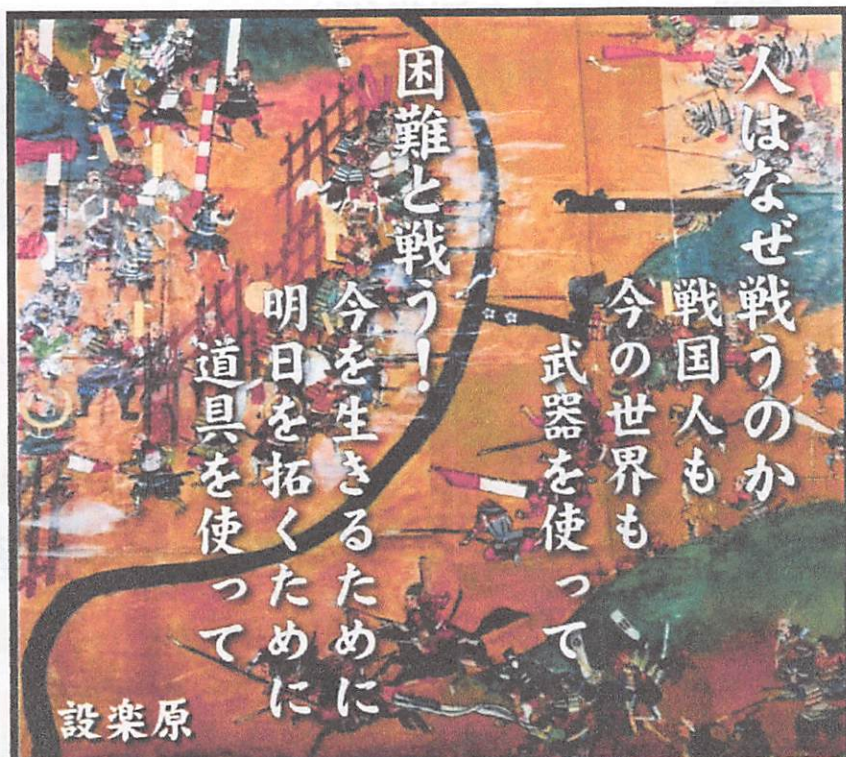 人はなぜ戦うのか
戦国人も
今の世界も
武器を使って
困難と戦う！
今を生きるために
明日を拓くために
道具を使って
設楽原